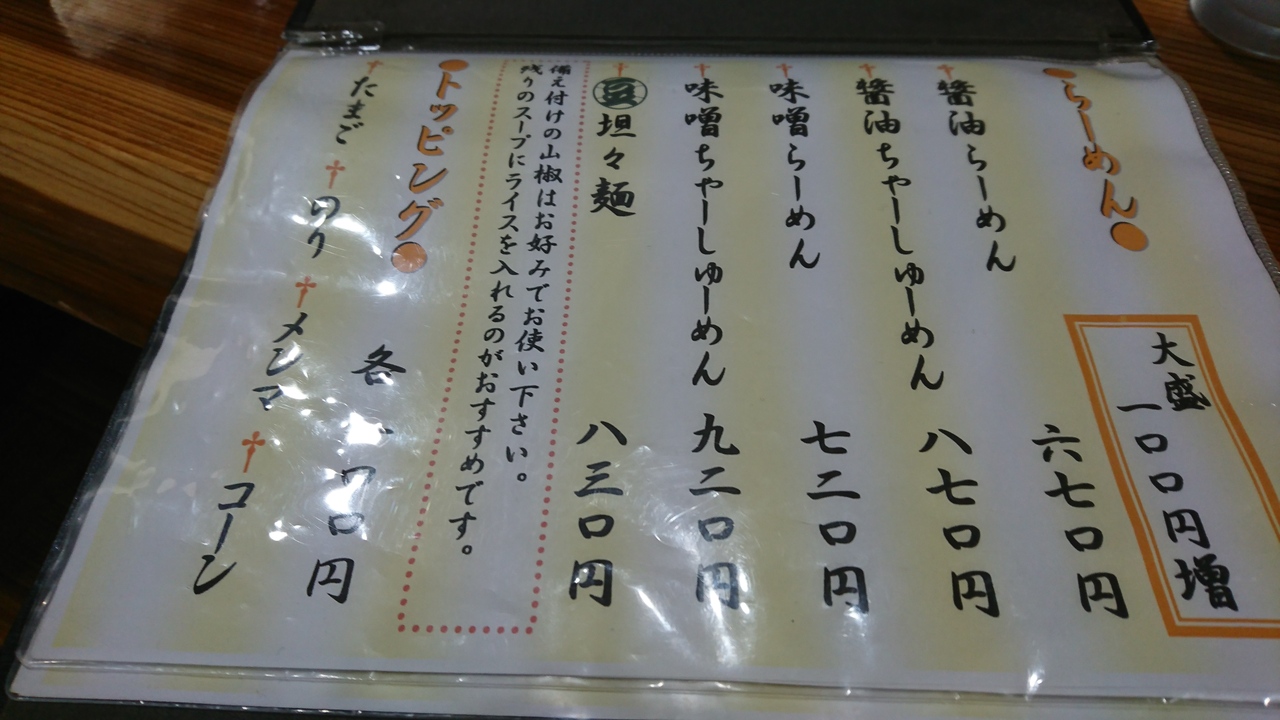 らーめん
大盛
一〇〇円増
醬油らーめん 六七〇円
醬油ちゃーしゅーめん 八七〇円
味噌らーめん 七二〇円
味噌ちゃーしゅーめん 九二〇円
豆坦々麺 八三〇円
備え付けの山椒はお好みでお使い下さい。
残りのスープにライスを入れるのがおすすめです。
トッピング
各一〇〇円
たまご のり メンマ コーン